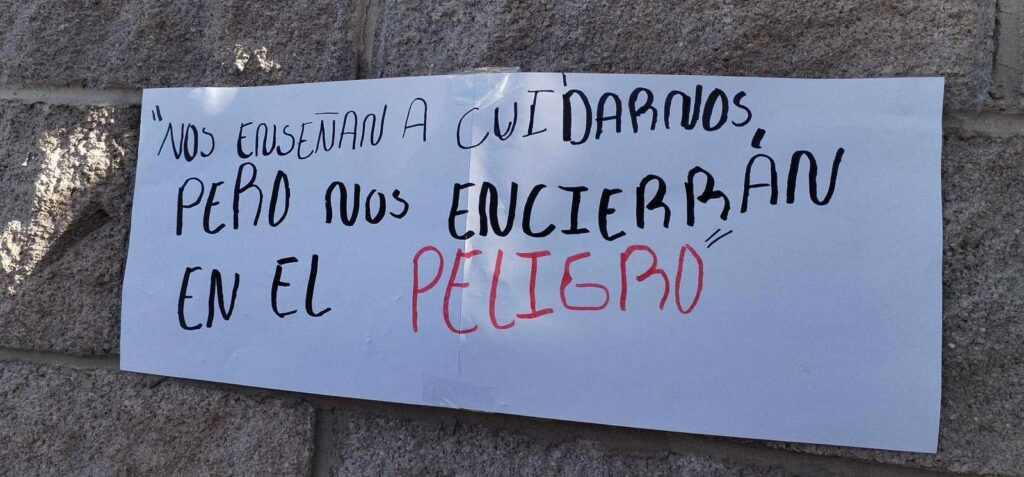 "NOS ENSEÑAN A CUIDARNOS,
PERO NOS ENCIERRÁN
EN EL PELIGRO"